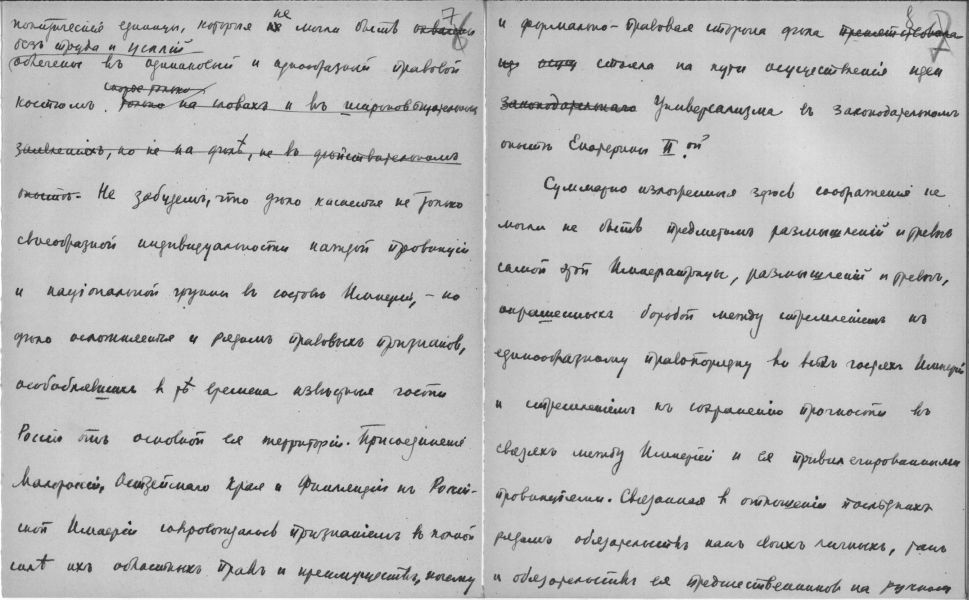 7
политическiя единицы, которыя не могли быть
безъ труда и усилiй
облечены въ одинаковый и однообразный правовой
скорѣе только
костюмъ. только на словахъ и въ широковѣщательныхъ
заявленiяхъ, но не на дѣлѣ, не въ дѣйствительномъ
опытѣ. Не забудемъ, что дѣло касается не только
своеобразной индивидуальности каждой провинцiи
и нацiональной группы въ составѣ Имперiи, – но
дѣло осложняется и рядомъ правовыхъ признаковъ,
особлявшихъ в тѣ времена извѣстныя части
Россiи отъ основной ея территорiи. Присоединенiе
Малороссiи, Остзейскаго Края и Финляндiи къ Россiй-
ской Имперiи сопровождалось признанiемъ в полной
силѣ ихъ областныхъ правъ и преимуществъ, почему
8
и формально-правовая сторона дѣла препятствовала
стояла на пути осуществленiя идеи
законодательнаго Универсализма въ законодательномъ
опытѣ Екатерины II ой.
Суммарно изложенныя здѣсь соображенiя не
могли не быть предметомъ размышленiй и тревогъ
самой этой Императрицы, размышленiй и тревогъ,
окрашенныхъ борьбой между стремленiемъ къ
единообразному правопорядку во всѣхъ частяхъ Имперiи
и стремленiемъ къ сохраненiю прочности въ
связяхъ между Имперiей и ея привилегированными
провинцiями. Связанная в отношенiи послѣднихъ
рядомъ обязательствъ какъ своихъ личныхъ, такъ
и обязательствъ ея предшественниковъ на русскомъ